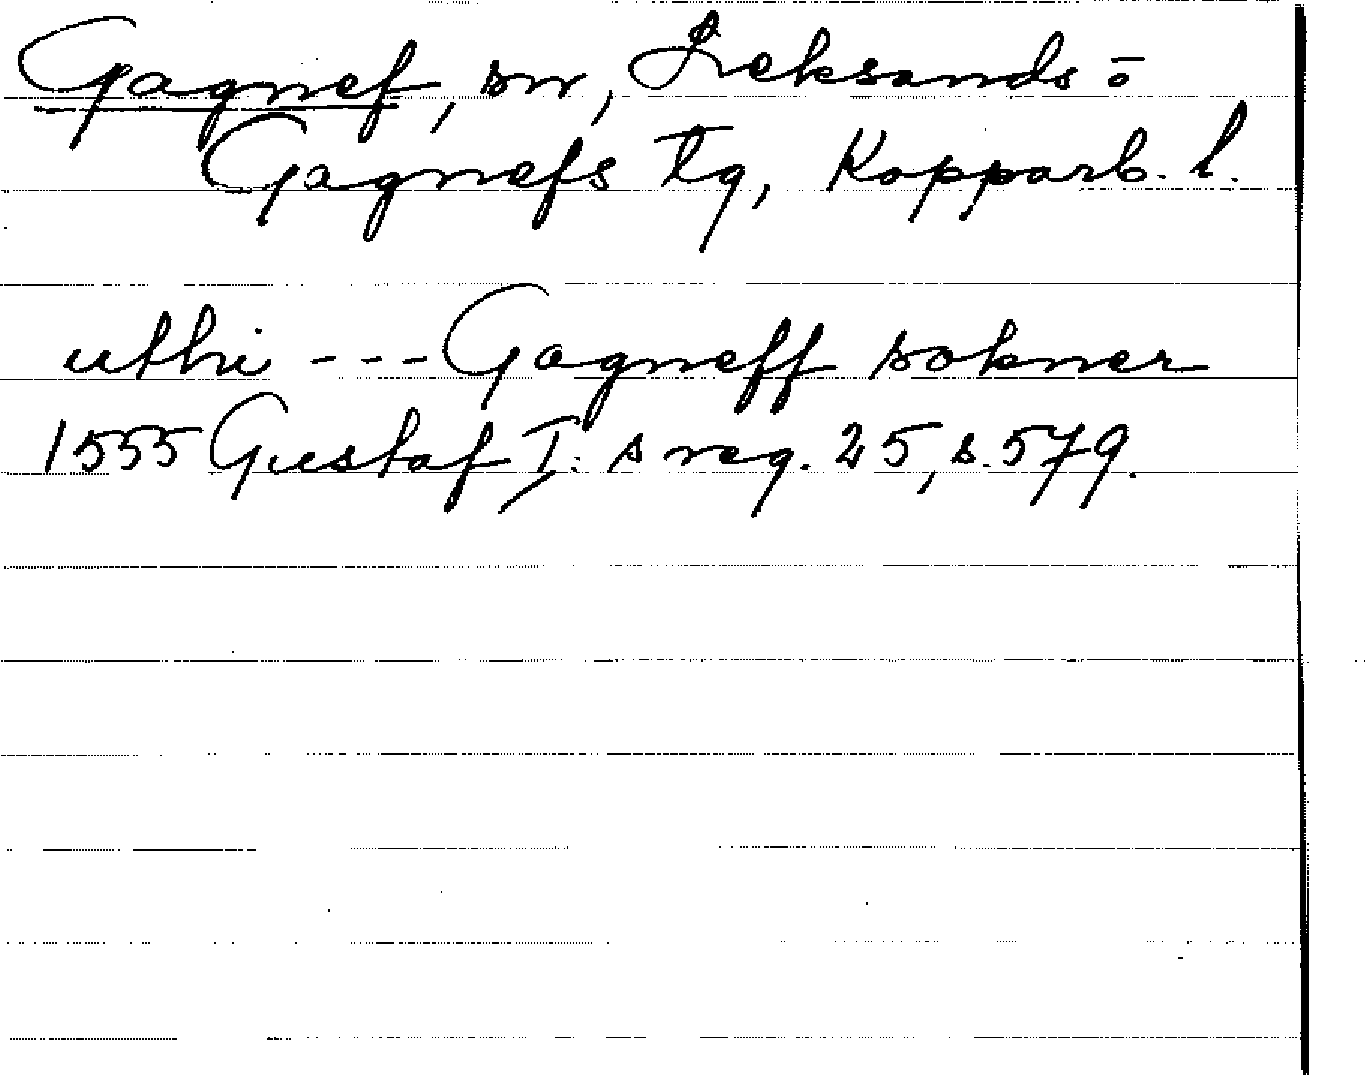 Gagnef, sn, Leksands- o
Gagnefs tg, Kopparb. l.
uthi --- Gagneff sokner
1555 Gustaf I:s reg. 25, s. 579.